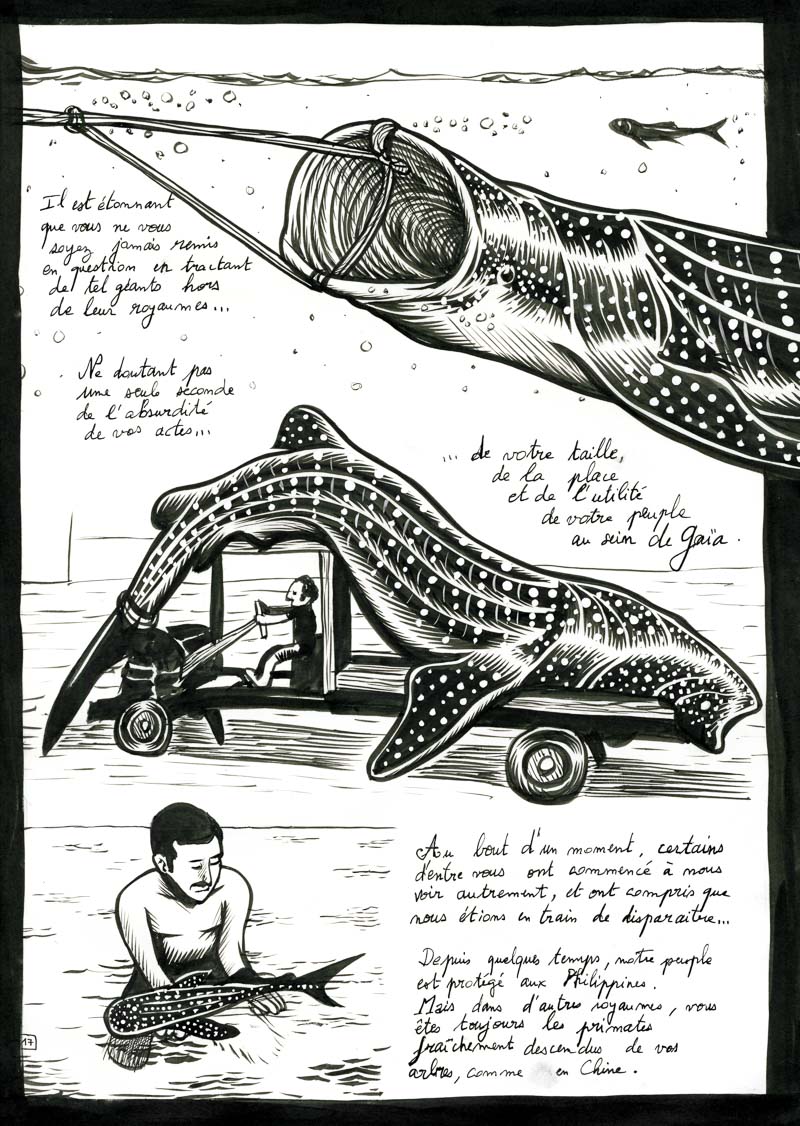 Il est étonnant
que vous ne vous
soyez jamais remis
en question en tractant
de tel géants hors
de leur royaumes...
Ne doutant pas
une seule seconde
de l'absurdité
de vos actes...
... de votre taille,
de la place
et de l'utilité
de votre peuple
au sein de Gaïa.
Au bout d'un moment, certains
d'entre vous ont commencé à nous
voir autrement, et ont compris que
nous étions en train de disparaitre...
Depuis quelques temps, notre peuple
est protégé aux Philippines.
Mais dans d'autres royaumes, vous
êtes toujours les primates
fraîchement descendus de vos
arbres, comme en Chine.
17